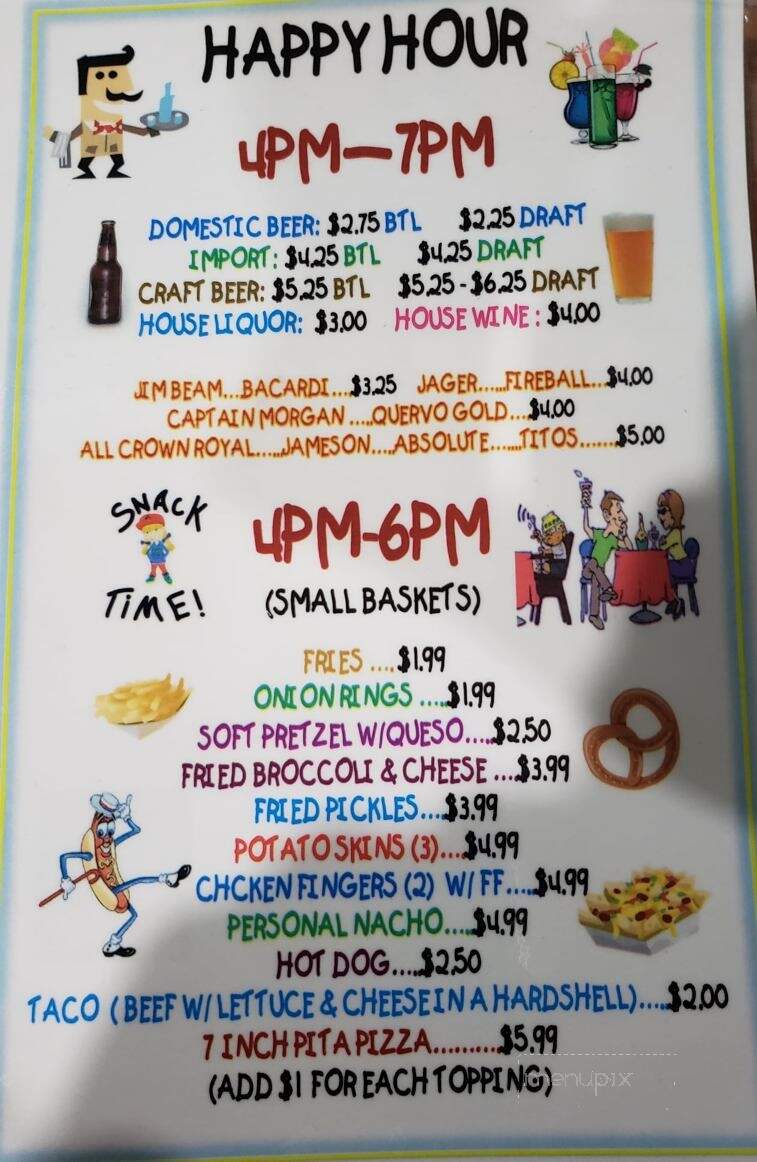 HAPPY HOUR
4PM—7PM
DOMESTIC BEER: $2.75 BTL $2.25 DRAFT
IMPORT: $4.25 BTL $4.25 DRAFT
CRAFT BEER: $5.25 BTL $5.25 - $6.25 DRAFT
HOUSE LIQUOR: $3.00 HOUSE WINE: $4.00
JIM BEAM...BACARDI...$3.25 JAGER......FIREBALL...$4.00
CAPTAIN MORGAN .....QUERVO GOLD....$4.00
ALL CROWN ROYAL......JAMESON.....ABSOLUTE......TITOS......$5.00
SNACK
TIME!
4PM-6PM
(SMALL BASKETS)
FRIES .... $1.99
ONION RINGS .....$1.99
SOFT PRETZEL W/QUESO.....$2.50
FRIED BROCCOLI & CHEESE ....$3.99
FRIED PICKLES....$3.99
POTATO SKINS (3)....$4.99
CHCKEN FINGERS (2) W/ FF.....$4.99
PERSONAL NACHO.....$4.99
HOT DOG.....$2.50
TACO (BEEF W/ LETTUCE & CHEESE IN A HARDSHELL).....$2.00
7 INCH PITA PIZZA..........$5.99
(ADD $1 FOR EACH TOPPING)
menupix